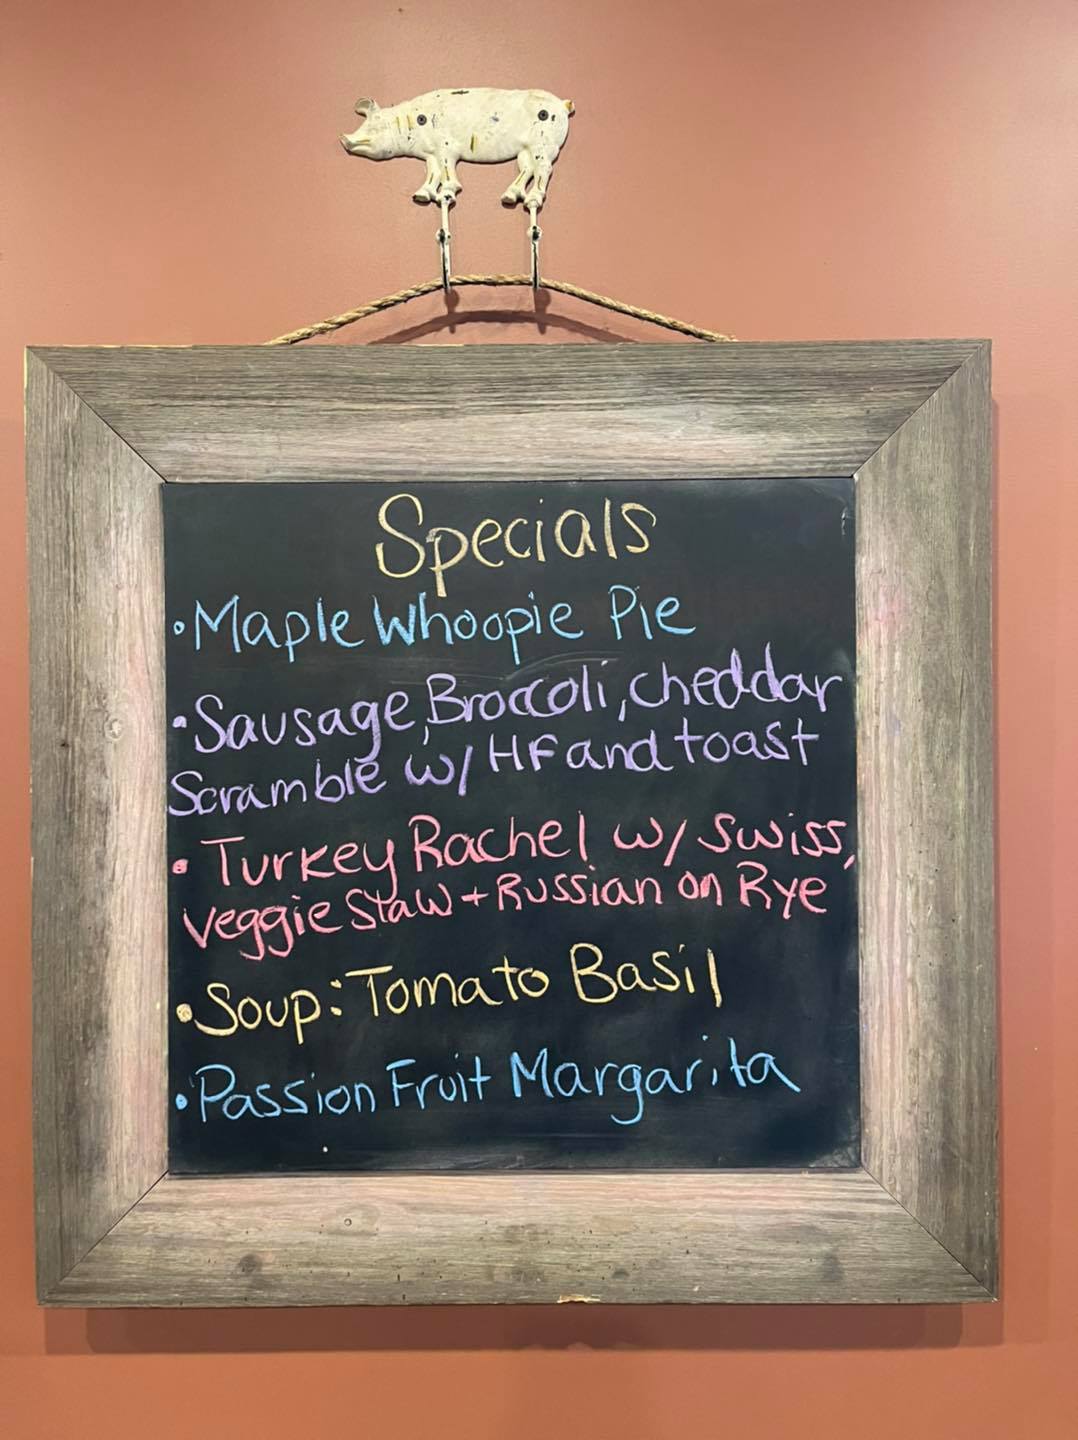 Specials
• Maple Whoopie Pie
• Sausage, Broccoli, cheddar
Scramble w/ HF and toast
• Turkey Rachel w/ Swiss,
Veggie Slaw + Russian on Rye
• Soup: Tomato Basil
• Passion Fruit Margarita